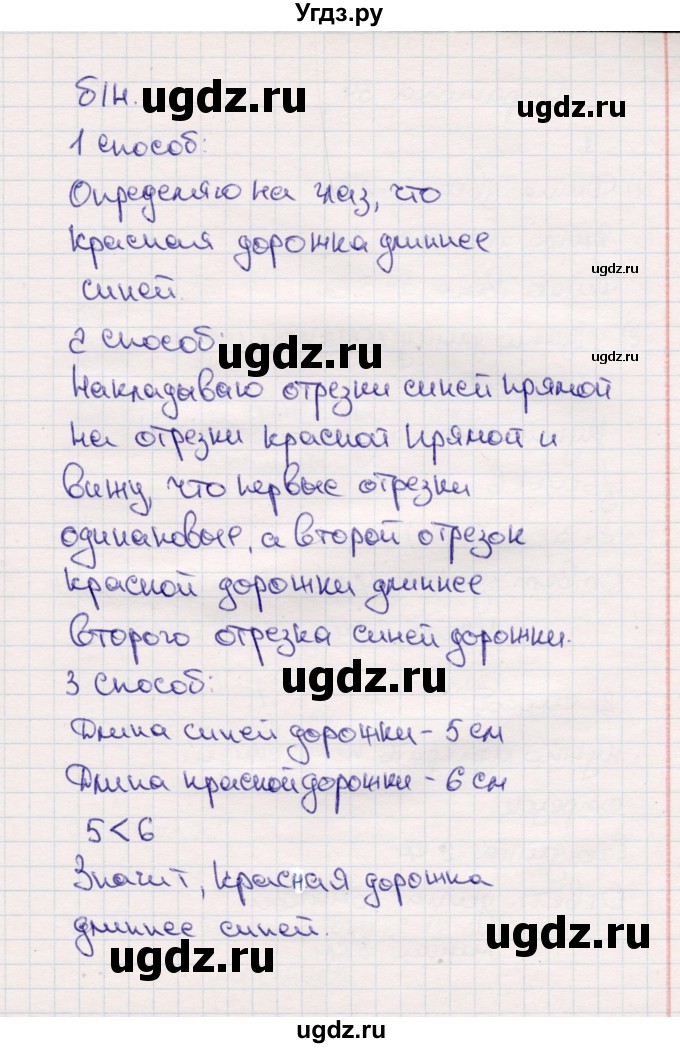 Угдз.ру
б/н. ugdz.ru
1 способ:
Определяю на глаз, что
красная дорожка длиннее
ugdz.ru
синей.
2 способ:
ugdz.ru
ugdz.ru
Накладываю отрезки синей прямой
на отрезки красной прямой и
вижу, что первые отрезки
одинаковые, а второй отрезок
красной дорожки длиннее
второго отрезка синей дорожки.
3 способ:
ugdz.ru
Длина синей дорожки - 5 см
Длина красной дорожки - 6 см
5 < 6
Значит, красная дорожка
длиннее синей.
ugdz.ru
ugdz.ru
ugdz.ru